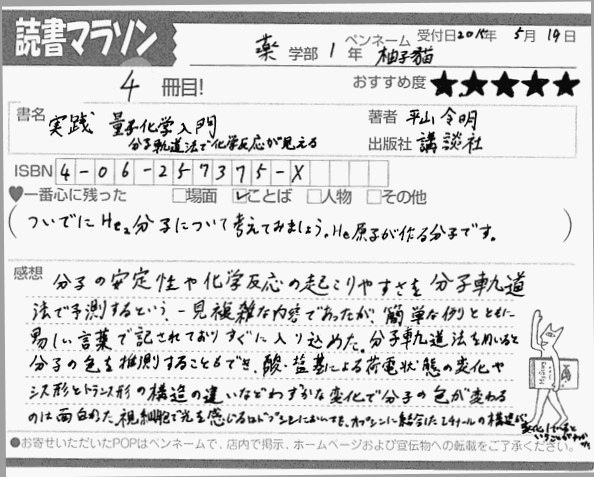 読書マラソン
薬 学部 1 年 ペンネーム 柚子猫 受付日2015年 5月 19日
4 冊目! おすすめ度 ★★★★★
書名 実践 量子化学入門
分子軌道法で化学反応が見える
著者 平山令明
出版社 講談社
ISBN 4-06-257375-X
♥一番心に残った □場面 ☑ことば □人物 □その他
(ついでにHe₂分子について考えてみましょう。He原子が作る分子です。)
感想 分子の安定性や化学反応の起こりやすさを分子軌道
法で予測するという、一見複雑な内容であったが、簡単な例とともに
易しい言葉で記されておりすぐに入り込めた。分子軌道法を用いると
分子の色を推測することもでき、酸・塩基による荷電状態の変化や
シス形とトランス形の構造の違いなどわずかな変化で分子の色が変わる
のは面白かった。視細胞で光を感じるロドプシンにおいても、オプシンに結合したレチナールの構造が
変化
●お寄せいただいたPOPはペンネームで、店内で掲示、ホームページおよび宣伝物への転載をご了承ください。